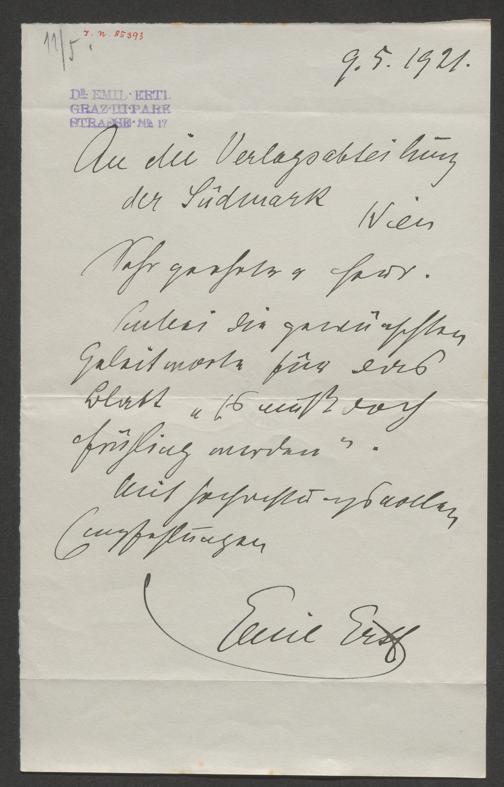 11/5.
J. N. 85393
9. 5. 1921.
DR. EMIL · ERTL
GRAZ · III · PARK
STRASSE · NR. 17
An die Verlagsabteilung
der Südmark
Wien
Sehr geehrter Herr.
Anbei die gewünschten
Geleitworte für das
Blatt „Es muß doch
Frühling werden“.
Mit hochachtungsvollen
Empfehlungen
Emil Ertl